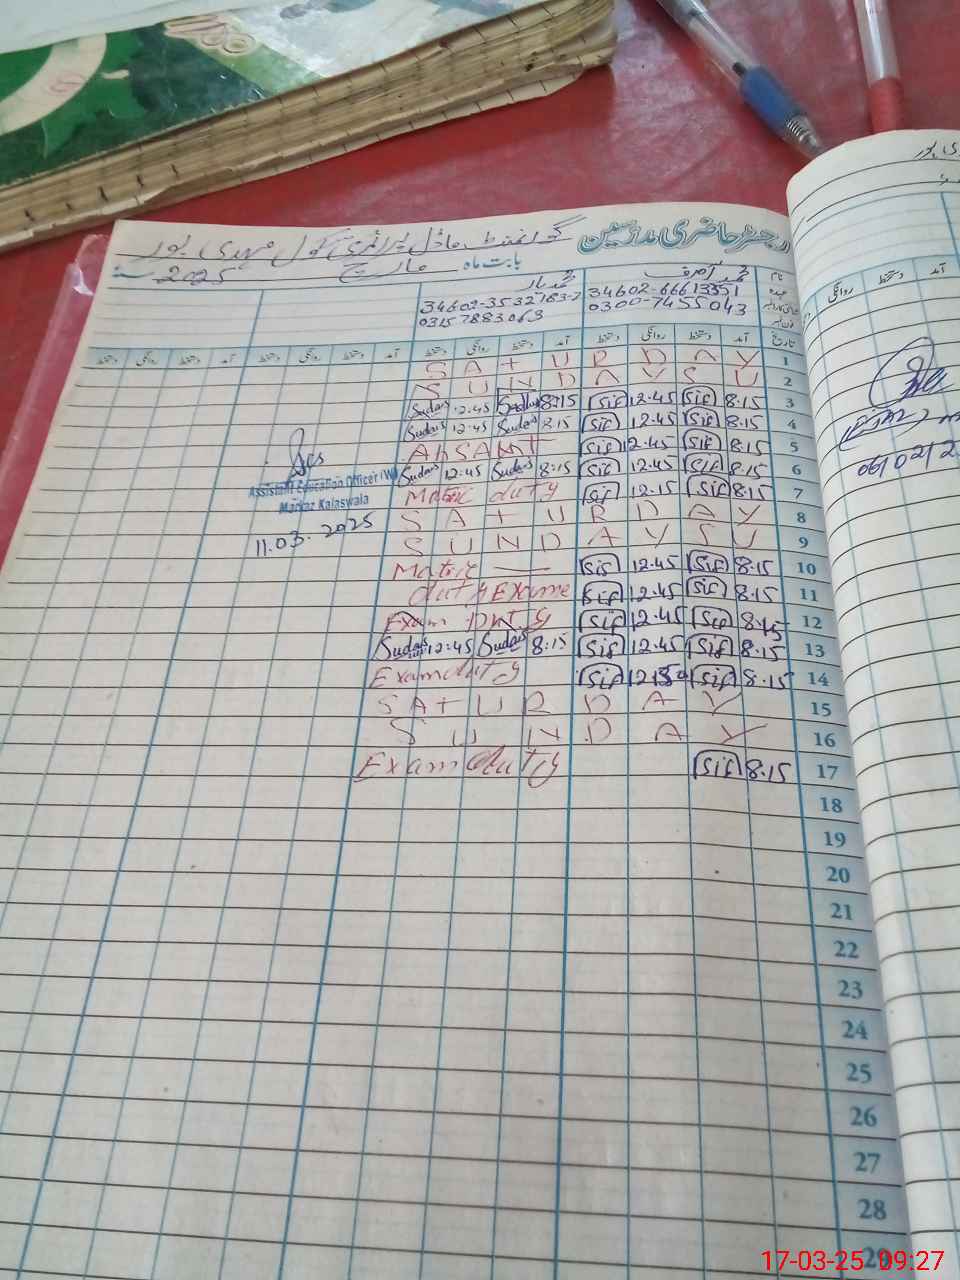 رجسٹر حاضری مدرسین
گورنمنٹ ماڈل پرائمری سکول مہدی پور
بابت ماہ مارچ 2025
نام
عہدہ
34602-3532783-7 34602-66613351
03157883063 0300-7455043
دستخط روانگی دستخط آمد دستخط روانگی دستخط آمد دستخط روانگی دستخط آمد دستخط روانگی دستخط آمد تاریخ
S A t U R D A Y 1
S U N D A Y S U 2
Sudais 12.45 8:15 Sif 12.45 Sif 8.15 3
Sudais 12.45 Sudais 8.15 Sif 12.45 Sif 8.15 4
Sif 12.45 Sif 8.15 5
Sudais 12:45 Sudais 8:15 Sif 12.45 Sif 8.15 6
Matric duty Sif 12.15 Sif 8.15 7
S A t U R D A Y 8
S U N D A Y S U 9
Matric Sif 12.45 Sif 8.15 10
duty Exame Sif 12.45 Sif 8.15 11
Exam Duty Sif 12.45 Sif 8.15 12
Sudais 12:45 Sudais 8:15 Sif 12.45 Sif 8.15 13
Exam duty Sif Sif 8.15 14
S A t U R D A Y 15
S U N D A Y 16
Exam duty Sif 8.15 17
18
19
20
21
22
23
24
25
26
27
28
29
Assistant Education Officer (W)
Markaz Kalaswala
11.03.2025
آمد
روانگی
دستخط
17-03-25 09:27